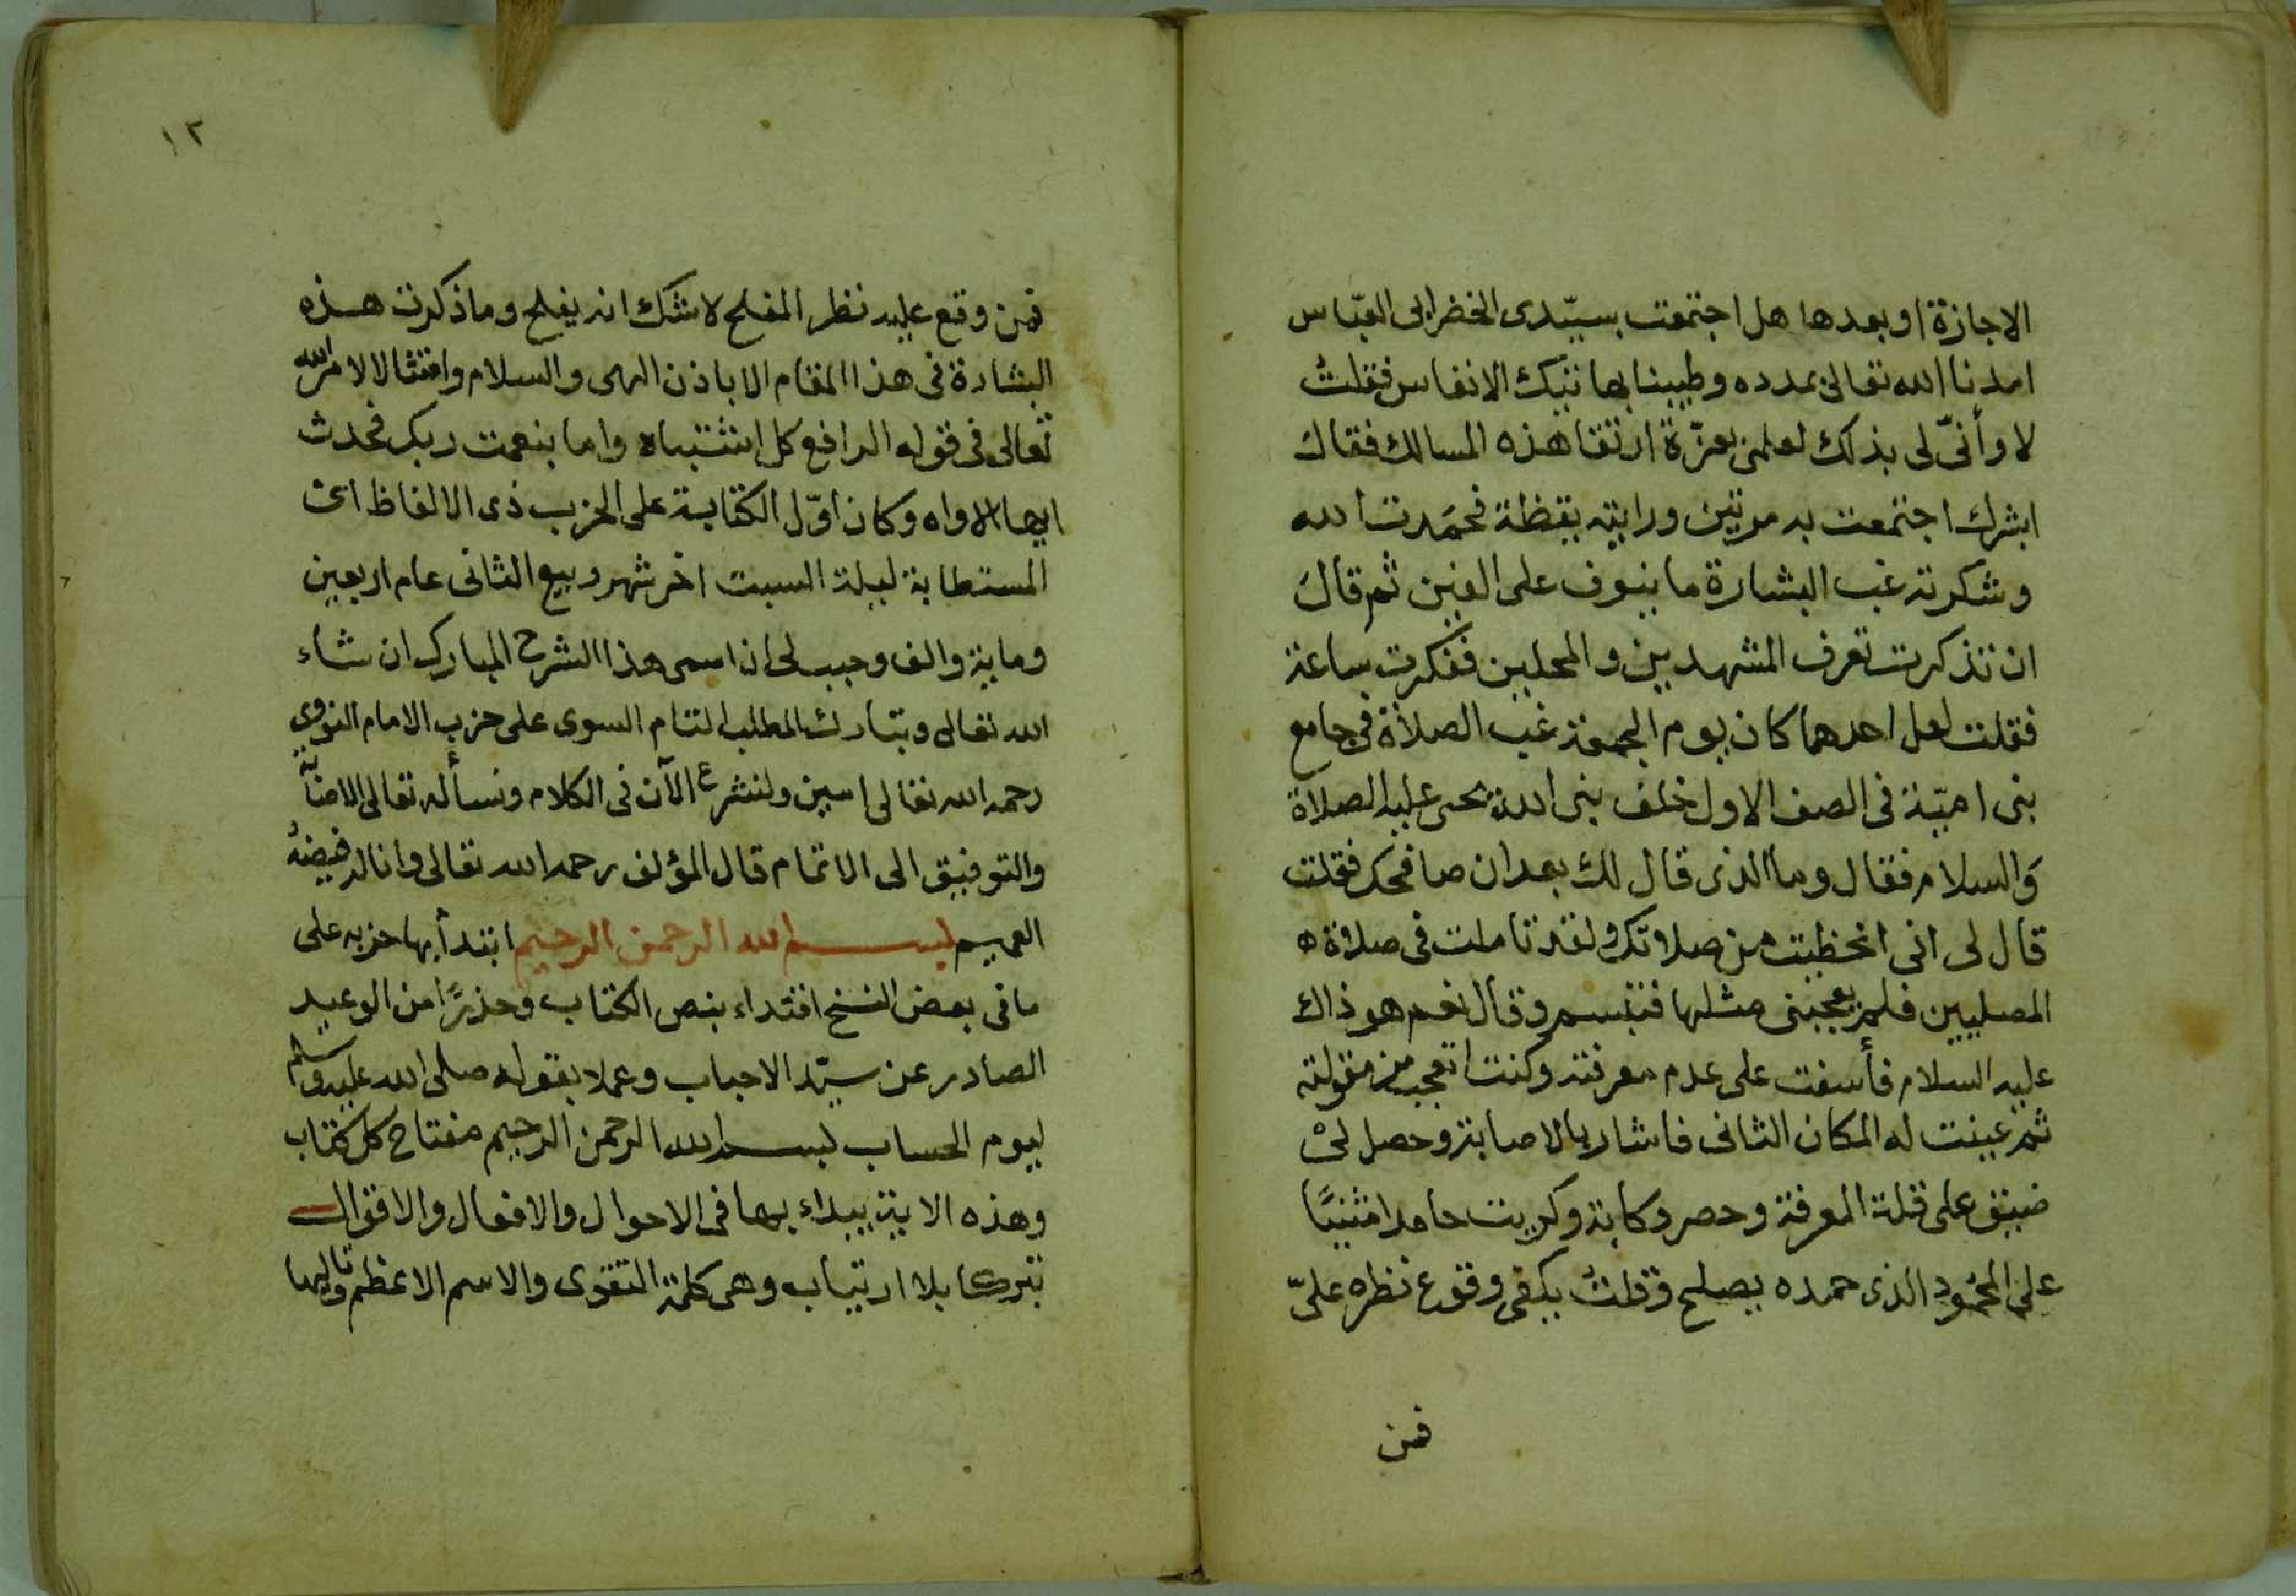 الاجازة او بعدها هل اجتمعت بسيّدى الخضر ابى العبّاس
امدنا الله تعالى بمدده وطيبنا بهاتيك الانفاس فقلت
لا وأنّى لى بذلك لعلمى بعزّة ارتقا هذه المسالك فقال
ابشرك اجتمعت به مرتين ورايته يقظة فحمَدت الله
وشكرته غب البشارة ما ينوف على الفين ثم قالَ
ان تذكرت تعرف المشهدين والمحلين ففكرت ساعة
فقلت لعل احدهما كان يوم الجمعة غب الصلاة فى جامع
بنى اميّة فى الصف الاول خلف نبى الله يحيى عليه الصلاة
وَالسلام فقال وما الذى قال لك بعد ان صافحك فقلت
قال لى انى انحظيت من صلاتك ولقد تاملت فى صلاة ه
المصليين فلم يعجبنى مثلها فتبسم وقال نعم هو ذاك
عليه السلام فأسفت على عدم معرفته وكنت اتعجب من مقولته
ثم عينت له المكان الثانى فاشار بالاصابة وحصل لى
ضيق على قلة المعرفة وحصر وكابة وكريت حامدا مثنيًا
على المحمُود الذى حمده يصلح وقلت يكفى وقوع نظره علىّ
فمن
١٢
فمن وقع عليه نظر المفلح لا شك انه يفلح وما ذكرت هذه
البشارة فى هذا المقام الا باذن الهى والسلام وامتثالا لامر الله
تعالى فى قوله الرافع كل اشتباه واما بنعمت ربك فحدث
ايها الاواه وكان اوّل الكتابة على الحزب ذى الالفاظ
المستطابة ليلة السبت اخر شهر ربيع الثانى عام اربعين
وماية والف وحبب لى ان اسمى هذا الشرح المبارك ان شاء
الله تعالى وتبارك المطلب التام السوى على حزب الامام النووى
رحمه الله تعالى امين ولنشرع الآن فى الكلام ونسأله تعالى الاعانة
والتوفيق الى الاتمام قال المؤلف رحمه الله تعالى وانا له فيضه
العميم بسم الله الرحمن الرحيم ابتدأ بها حزبه على
ما فى بعض النسخ اقتداء بنص الكتاب وحذرًا من الوعيد
الصادر عن سيّد الاحباب وعملا بقوله صلى الله عليه وسلم
ليوم الحساب بسم الله الرحمن الرحيم مفتاح كل كتاب
وهذه الاية يبداء بها فى الاحوال والافعال والاقوال
تبركا بلا ارتياب وهى كلمة التقوى والاسم الاعظم وتاليها